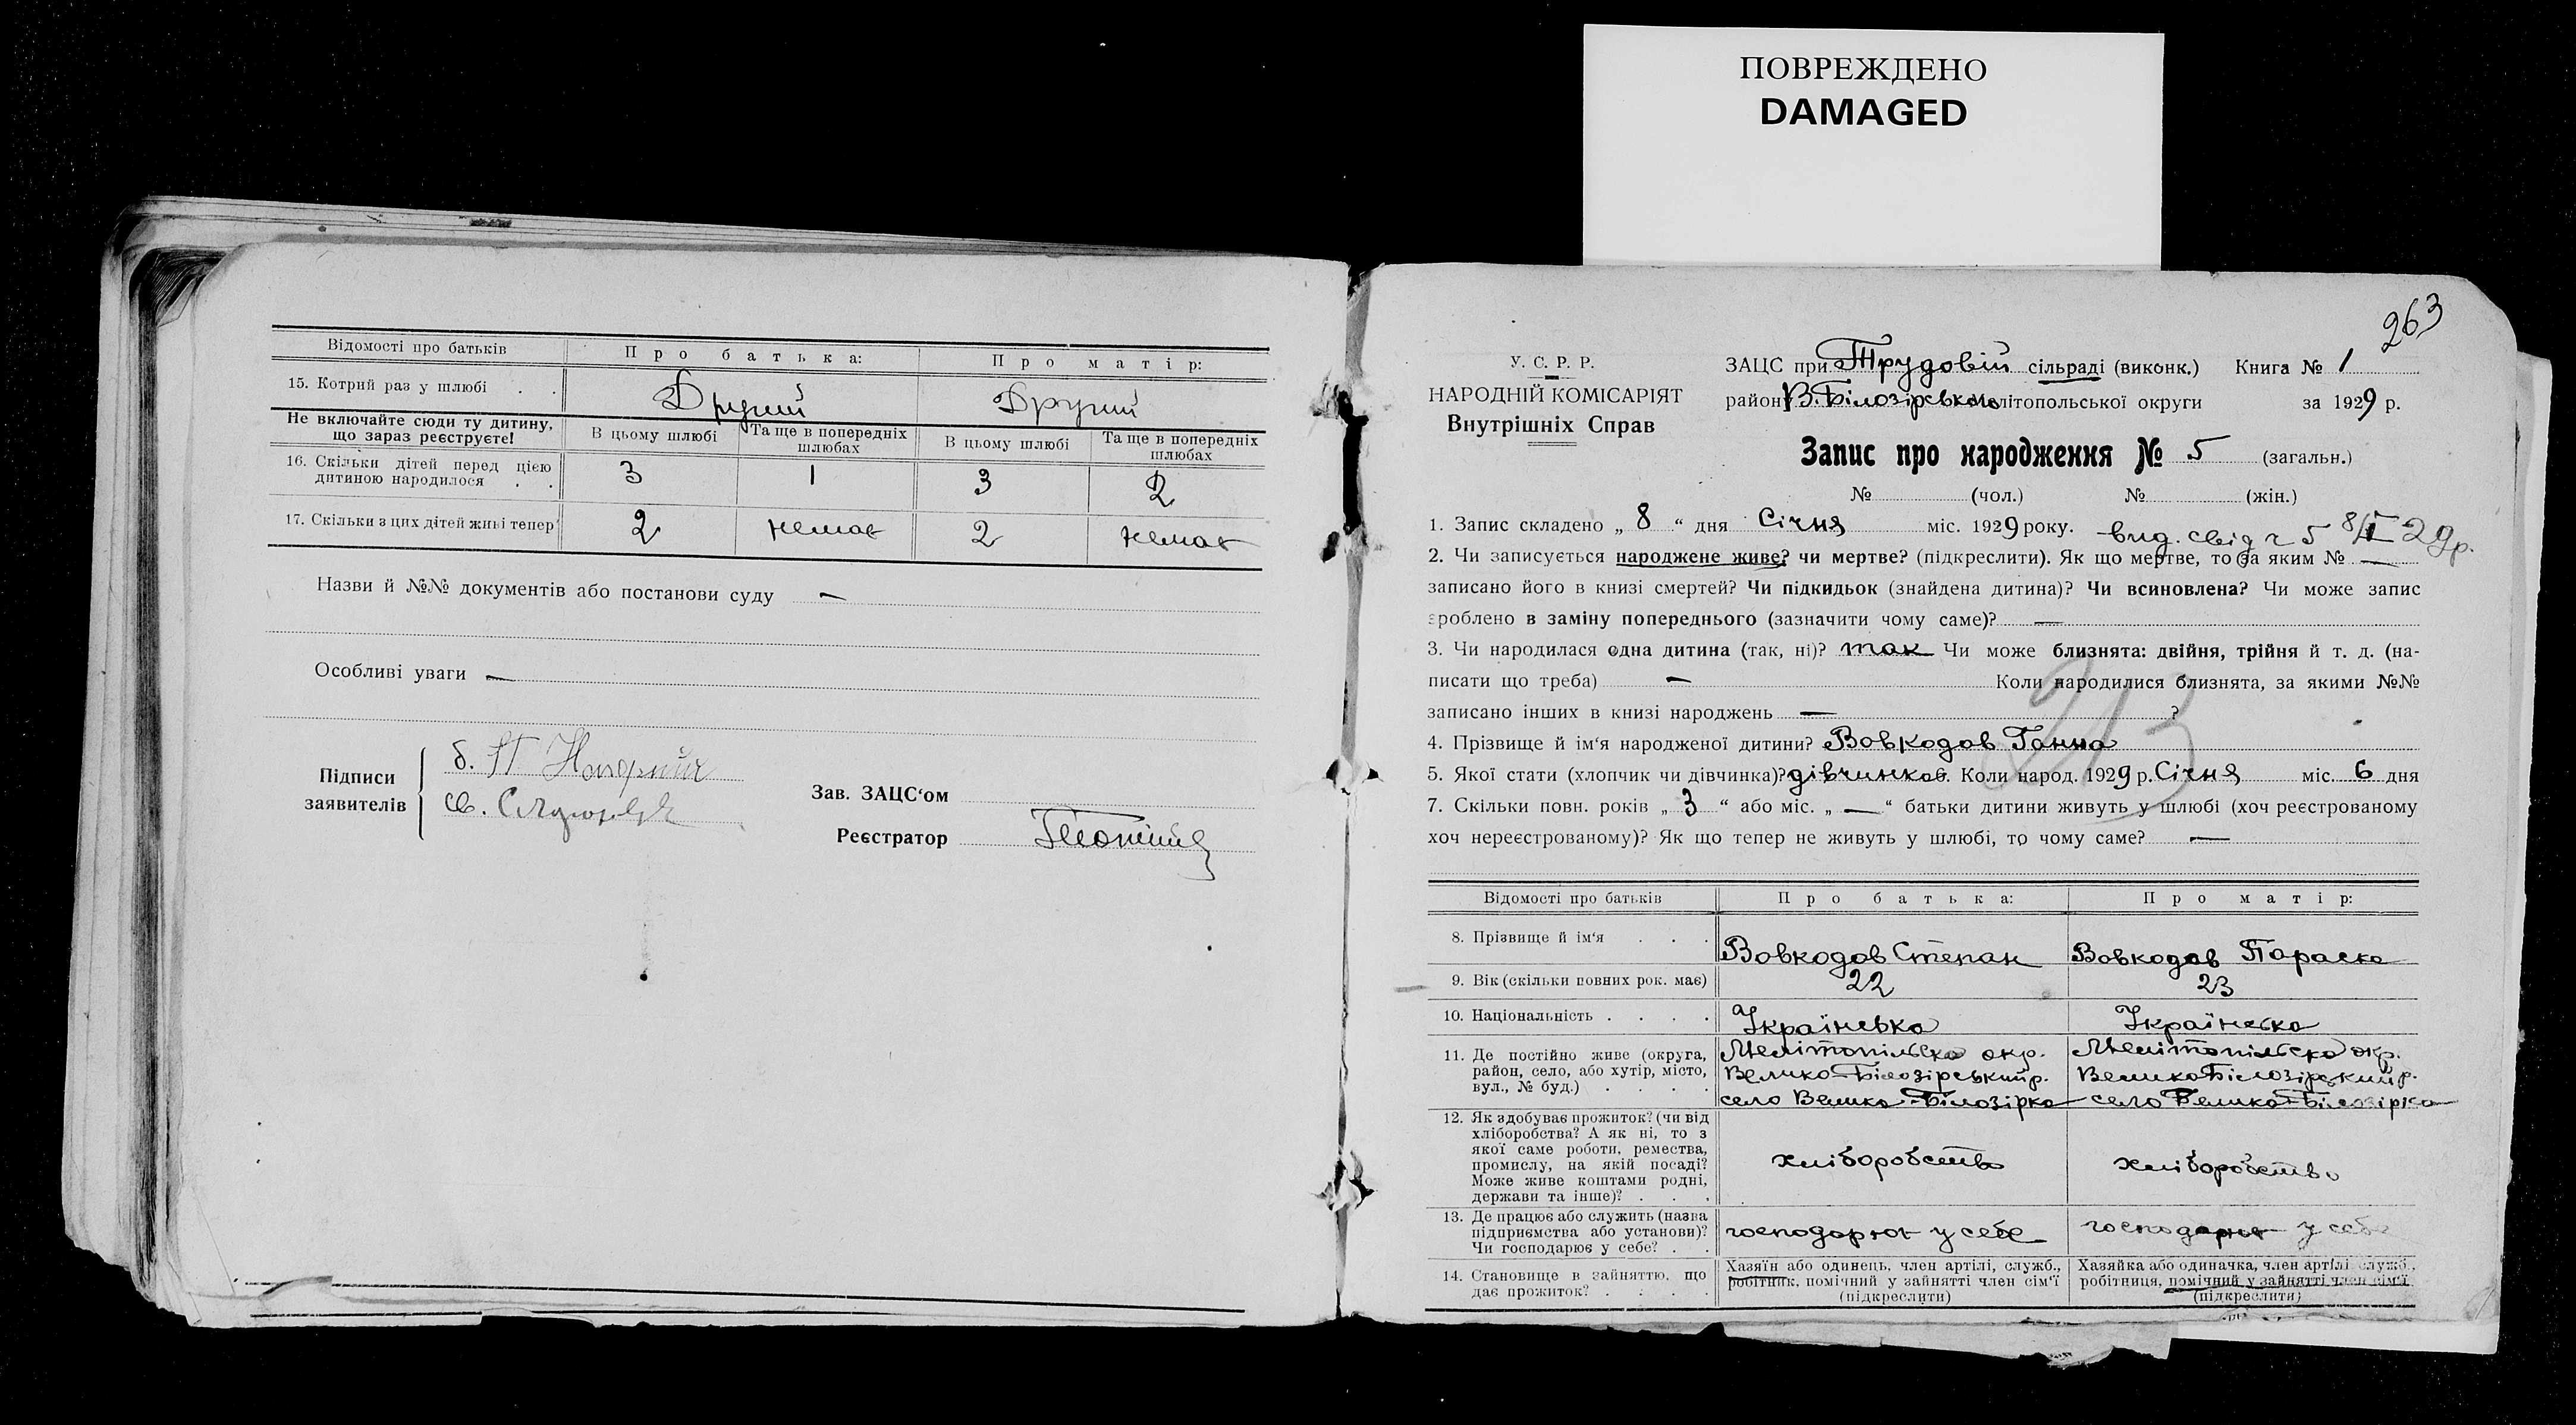 ПОВРЕЖДЕНО
DAMAGED
Відомості про батьків
Про батька:
Про матір:
15. Котрий раз у шлюбі . .
Другий
Другий
Не включайте сюди ту дитину,
що зараз реєструєте!
В цьому шлюбі
Та ще в попередніх
шлюбах
В цьому шлюбі
Та ще в попередніх
шлюбах
16. Скільки дітей перед цією
дитиною народилося . .
3
1
3
2
17. Скільки з цих дітей живі тепер
2
немає
2
немає
Назви й №№ документів або постанови суду —
Особливі уваги —
Підписи
заявителів
б. П.
св.
Зав. ЗАЦС‘ом
Реєстратор
263
У. С. Р. Р.
НАРОДНІЙ КОМІСАРІЯТ
Внутрішніх Справ
ЗАЦС при Трудовій сільраді (виконк.) Книга № 1
району В.Білозірського Мелітопольської округи за 1929 р.
Запис про народження № 5 (загальн.)
№ (чол.) № (жін.)
1. Запис складено „ 8 “ дня Січня міс. 1929 року. вид. свід ч 5 8/I 29р.
2. Чи записується народжене живе? чи мертве? (підкреслити). Як що мертве, то за яким № —
записано його в книзі смертей? Чи підкидьок (знайдена дитина)? Чи всиновлена? Чи може запис
зроблено в заміну попереднього (зазначити чому саме)? —
3. Чи народилася одна дитина (так, ні)? так Чи може близнята: двійня, трійня й т. д. (на-
писати що треба) — Коли народилися близнята, за якими №№
записано інших в книзі народжень — ?
213
4. Прізвище й ім‘я народженої дитини? Вовкодав Ганна
5. Якої стати (хлопчик чи дівчинка)? дівчинка 6. Коли народ. 1929 р. Січня міс. 6 дня
7. Скільки повн. років „ 3 “ або міс. „ — “ батьки дитини живуть у шлюбі (хоч реєстрованому
хоч нереєстрованому)? Як що тепер не живуть у шлюбі, то чому саме? —
Відомості про батьків
Про батька:
Про матір:
8. Прізвище й ім‘я . . .
Вовкодав Степан
Вовкодав Параска
9. Вік (скільки повних рок. має)
22
23
10. Національність . . . .
Українська
Українська
11. Де постійно живе (округа,
район, село, або хутір, місто,
вул., № буд.) . . . .
Мелітопільска окр.
Велико-Білозірський р.
село Велика-Білозірка
Мелітопільска окр.
Велико-Білозірський р.
село Велика-Білозірка
12. Як здобуває прожиток? (чи від
хліборобства? А як ні, то з
якої саме роботи, ремества,
промислу, на якій посаді?
Може живе коштами родні,
держави та інше)? . . .
хліборобство
хліборобство
13. Де працює або служить (назва
підприємства або установи)?
Чи господарює у себе? . .
господарює у себе
господарює у себе
14. Становище в зайняттю, що
дає прожиток? . . . .
Хазяїн або одинець, член артілі, служб.,
робітник, помічний у зайнятті член сім‘ї
(підкреслити)
Хазяйка або одиначка, член артілі служб.,
робітниця, помічний у зайнятті член сім‘ї
(підкреслити)